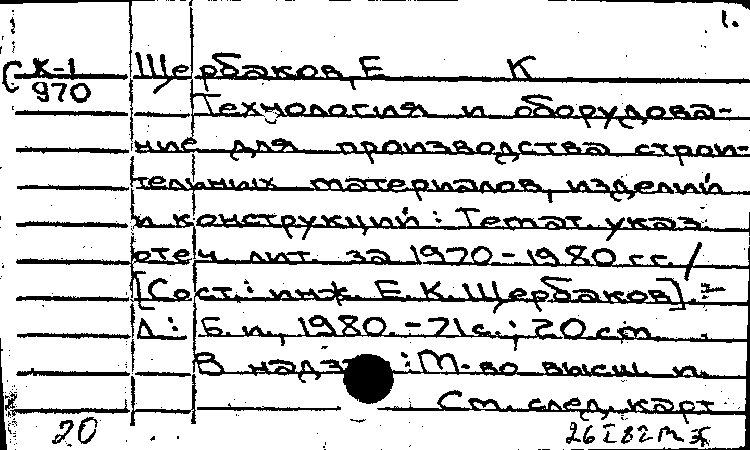 1.
С К-1 Щербаков, Е К
970 Технология и оборудова-
ние для производства строи-
тельных материалов, изделий
и конструкций: Темат. указ.
отеч. лит. за 1970-1980 гг. /
[Сост.: инж. Е. К. Щербаков]. -
Л.: Б. и., 1980. - 71 с.; 20 см.
В надзаг.: М-во высш. и.
См. след. карт
20